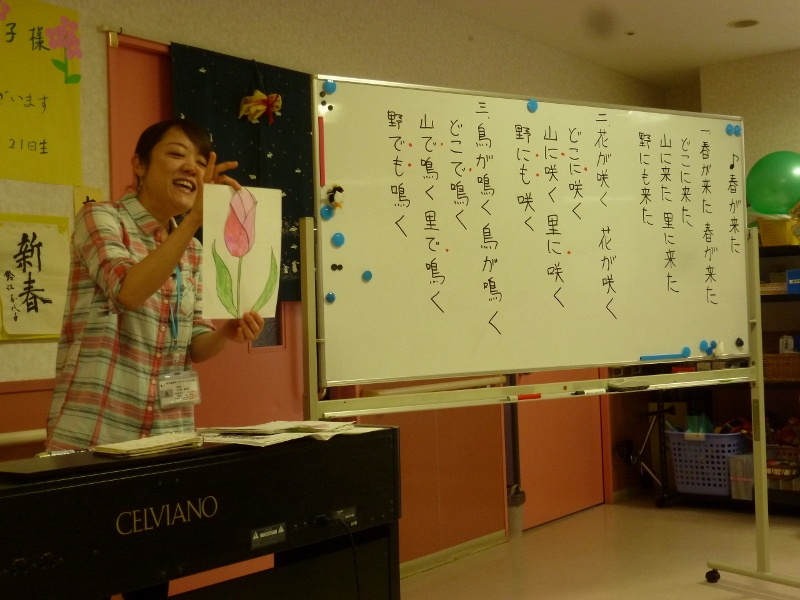 ♪春が来た
一.春が来た 春が来た
どこに来た
山に来た 里に来た
野にも来た
二.花が咲く 花が咲く
どこに咲く
山に咲く 里に咲く
野にも咲く
三.鳥が鳴く 鳥が鳴く
どこで鳴く
山で鳴く 里で鳴く
野でも鳴く
子様
ざいます
21日生
新春
CELVIANO